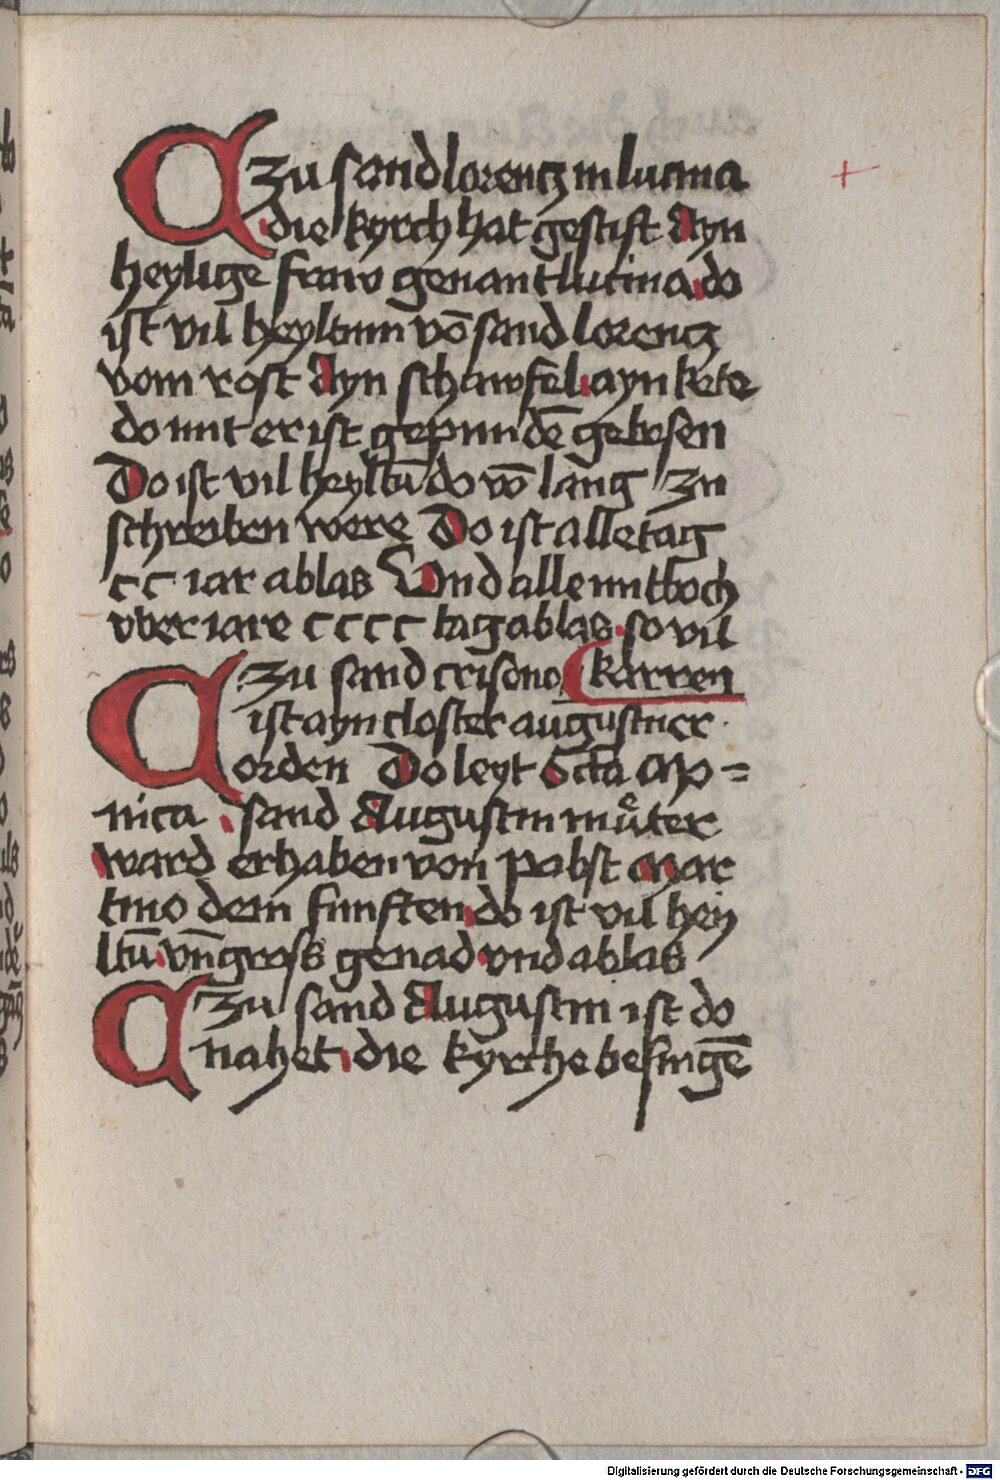 zu sand lorencz in lucina
die kyrch hat gestift Ayn
heylige fraw genant lucina do
ist vil heyltum võ sand lorencz
vom rost Ayn schawfel ayn kete
do mit er ist gepundẽ gebesen
Do ist vil heyltũ do võ lang zu
schreiben were Do ist alle tag
cc iar ablas Und alle mitboch
vber iare cccc tag ablas so vil
zu sand crisono karren
ist ayn closter augustiner
orden Do leyt Scta Mo=
nica sand Augustin můter
ward erhaben von pabst Mar
tino dem funften do ist vil hey
ltũ vñ gross genad vnd ablas
zu sand Augustin ist do
nahet die kyrche besingẽ
Digitalisierung gefördert durch die Deutsche Forschungsgemeinschaft - DFG